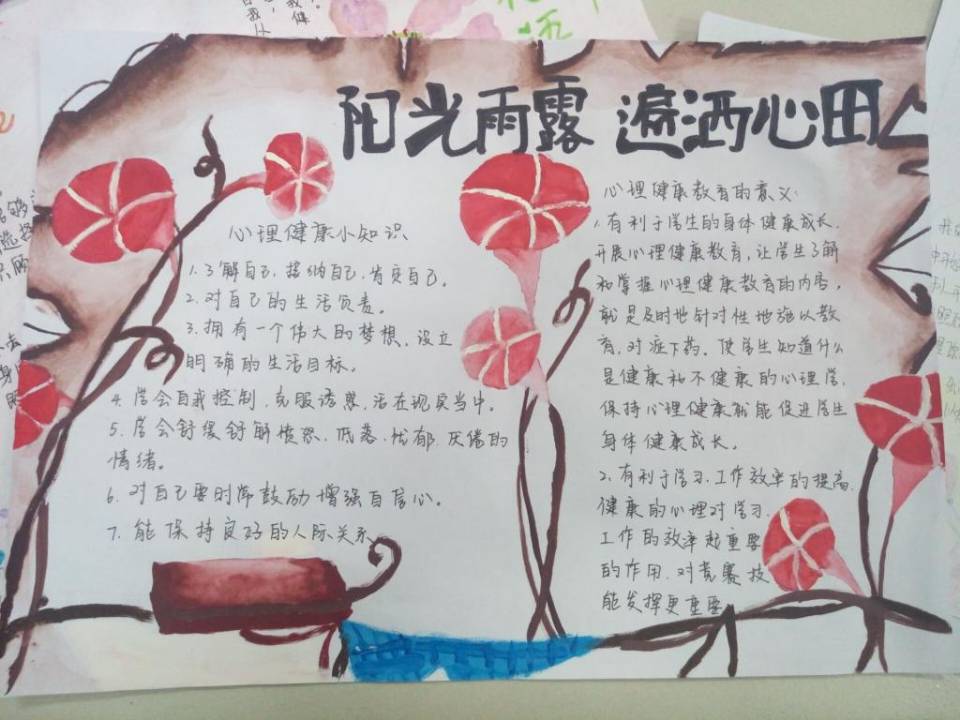 阳光雨露 遍洒心田
心理健康小知识
1.了解自己，接纳自己，肯定自己。
2.对自己的生活负责。
3.拥有一个伟大的梦想、设立
明确的生活目标。
4.学会自我控制，克服诱惑，活在现实当中。
5.学会舒缓舒解愤怒、低落、忧郁、厌倦的
情绪。
6.对自己要时常鼓励增强自信心。
7.能保持良好的人际关系
心理健康教育的意义：
1.有利于学生的身体健康成长.
开展心理健康教育，让学生了解
和掌握心理健康教育的内容，
就是及时地针对性地施以教
育，对症下药。使学生知道什么
是健康和不健康的心理学，
保持心理健康就能促进学生
身体健康成长。
2.有利于学习、工作效率的提高.
健康的心理对学习、
工作的效率起重要
的作用，对竞赛技
能发挥更重要